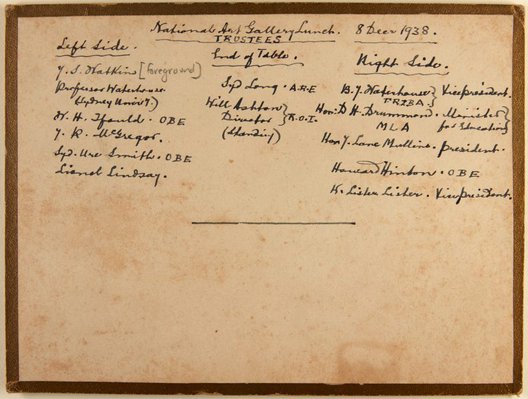 National Art Gallery Lunch. 8 Decr 1938.
TRUSTEES
Left Side.
J. S. Watkins [foreground]
Professor Waterhouse
(Sydney Univ'y.)
W. H. Ifould. OBE
J. R. McGregor.
Syd. Ure Smith. OBE
Lionel Lindsay.
End of Table.
Syd Long. A.R.E
Will Ashton
Director } R.O.I.
(Standing)
Right Side.
B. J. Waterhouse } Vice president.
F.R.I.B.A.
Hon. D. H. Drummond. Minister
MLA for Education
Hon J. Lane Mullins. president.
Howard Hinton. OBE
W. Lister Lister. Vice president.